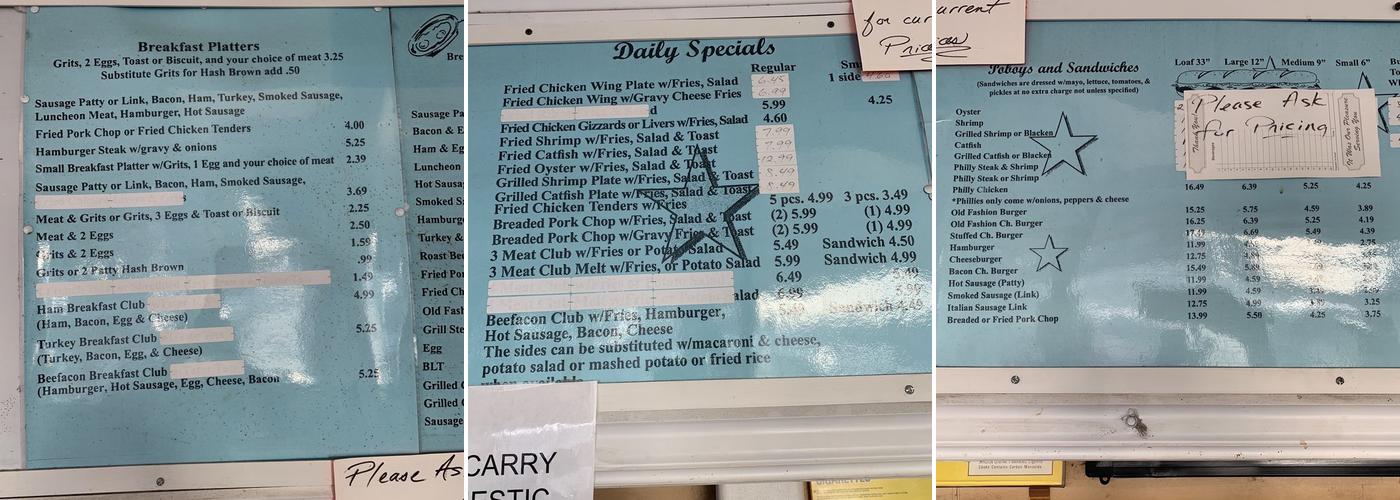 Breakfast Platters
Grits, 2 Eggs, Toast or Biscuit, and your choice of meat 3.25
Substitute Grits for Hash Brown add .50
Sausage Patty or Link, Bacon, Ham, Turkey, Smoked Sausage,
Luncheon Meat, Hamburger, Hot Sausage
Fried Pork Chop or Fried Chicken Tenders 4.00
Hamburger Steak w/gravy & onions 5.25
Small Breakfast Platter w/Grits, 1 Egg and your choice of meat 2.39
Sausage Patty or Link, Bacon, Ham, Smoked Sausage,
3.69
Meat & Grits or Grits, 3 Eggs & Toast or Biscuit 2.25
Meat & 2 Eggs 2.50
Grits & 2 Eggs 1.59
Grits or 2 Patty Hash Brown .99
1.49
Ham Breakfast Club 4.99
(Ham, Bacon, Egg & Cheese)
Turkey Breakfast Club 5.25
(Turkey, Bacon, Egg, & Cheese)
Beefacon Breakfast Club 5.25
(Hamburger, Hot Sausage, Egg, Cheese, Bacon
Please As
Bre
Sausage Pa
Bacon & E
Ham & Eg
Luncheon
Hot Sausa
Smoked
Hamburg
Turkey &
Roast Bee
Fried Por
Fried Ch
Old Fash
Grill Ste
Egg
BLT
Grilled C
Grilled
Sausage
for cur
Prices
Daily Specials
Regular Sm
1 side
Fried Chicken Wing Plate w/Fries, Salad 6.45
Fried Chicken Wing w/Gravy Cheese Fries 6.99
d 5.99 4.25
Fried Chicken Gizzards or Livers w/Fries, Salad 4.60
Fried Shrimp w/Fries, Salad & Toast 7.99
Fried Catfish w/Fries, Salad & Toast 7.99
Fried Oyster w/Fries, Salad & Toast 12.99
Grilled Shrimp Plate w/Fries, Salad & Toast 8.49
Grilled Catfish Plate w/Fries, Salad & Toast 8.49
Fried Chicken Tenders w/Fries 5 pcs. 4.99 3 pcs. 3.49
Breaded Pork Chop w/Fries, Salad & Toast (2) 5.99 (1) 4.99
Breaded Pork Chop w/Gravy Fries & Toast (2) 5.99 (1) 4.99
3 Meat Club w/Fries or Potato Salad 5.49 Sandwich 4.50
3 Meat Club Melt w/Fries, or Potato Salad 5.99 Sandwich 4.99
6.49
alad 6.99
Sandwich
Beefacon Club w/Fries, Hamburger,
Hot Sausage, Bacon, Cheese
The sides can be substituted w/macaroni & cheese,
potato salad or mashed potato or fried rice
when available
CARRY
ESTIC
urrent
Poboys and Sandwiches
(Sandwiches are dressed w/mayo, lettuce, tomatoes, &
pickles at no extra charge not unless specified)
Loaf 33" Large 12" Medium 9" Small 6"
Please Ask
for Pricing
Thank You!
It Was Our Pleasure
Serving You
Oyster
Shrimp
Grilled Shrimp or Blacken
Catfish
Grilled Catfish or Blacken
Philly Steak & Shrimp
Philly Steak or Shrimp
Philly Chicken 16.49 6.39 5.25 4.25
*Phillies only come w/onions, peppers & cheese
Old Fashion Burger 15.25 5.75 4.59 3.89
Old Fashion Ch. Burger 16.25 6.39 5.25 4.19
Stuffed Ch. Burger 17.49 6.69 5.49 4.39
Hamburger 11.99 2.75
Cheeseburger 12.75
Bacon Ch. Burger 15.49
Hot Sausage (Patty) 11.99 4.59
Smoked Sausage (Link) 11.99 4.59
Italian Sausage Link 12.75 4.99 3.25
Breaded or Fried Pork Chop 13.99 5.50 4.25 3.75